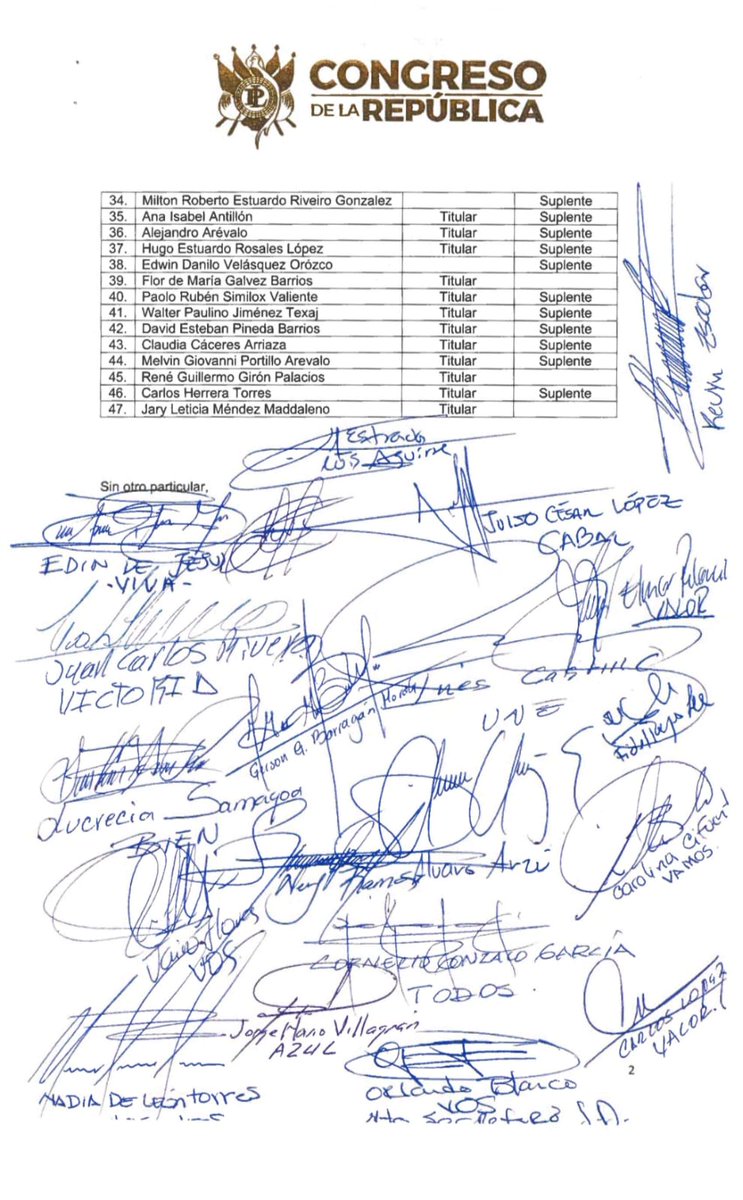 CONGRESO
DE LA REPÚBLICA
34. Milton Roberto Estuardo Riveiro Gonzalez Suplente
35. Ana Isabel Antillón Titular Suplente
36. Alejandro Arévalo Titular Suplente
37. Hugo Estuardo Rosales López Titular Suplente
38. Edwin Danilo Velásquez Orózco Suplente
39. Flor de María Galvez Barrios Titular
40. Paolo Rubén Similox Valiente Titular Suplente
41. Walter Paulino Jiménez Texaj Titular Suplente
42. David Esteban Pineda Barrios Titular Suplente
43. Claudia Cáceres Arriaza Titular Suplente
44. Melvin Giovanni Portillo Arevalo Titular Suplente
45. René Guillermo Girón Palacios Titular
46. Carlos Herrera Torres Titular Suplente
47. Jary Leticia Méndez Maddaleno Titular
Kevin Escobar
Estrada
Luis Aguirre
Sin otro particular,
JULIO CÉSAR LÓPEZ
CABAL
EDIN DE JESUS
-VIVA-
Elmer Palencia
VALOR
Juan Carlos Rivera
VICTORIA
Inés Castillo
UNE
Gerson G. Barragán Morales
Lucrecia Samayoa
BIEN
Álvaro Arzú
Ramos
Carolina
VAMOS.
Flores
VOS
CORNELIO GONZALO GARCÍA
TODOS.
CARLOS LOPEZ
VALOR
Jorge Mario Villagrán
AZUL
2
NADIA DE LEÓN TORRES
Orlando Blanco
VOS